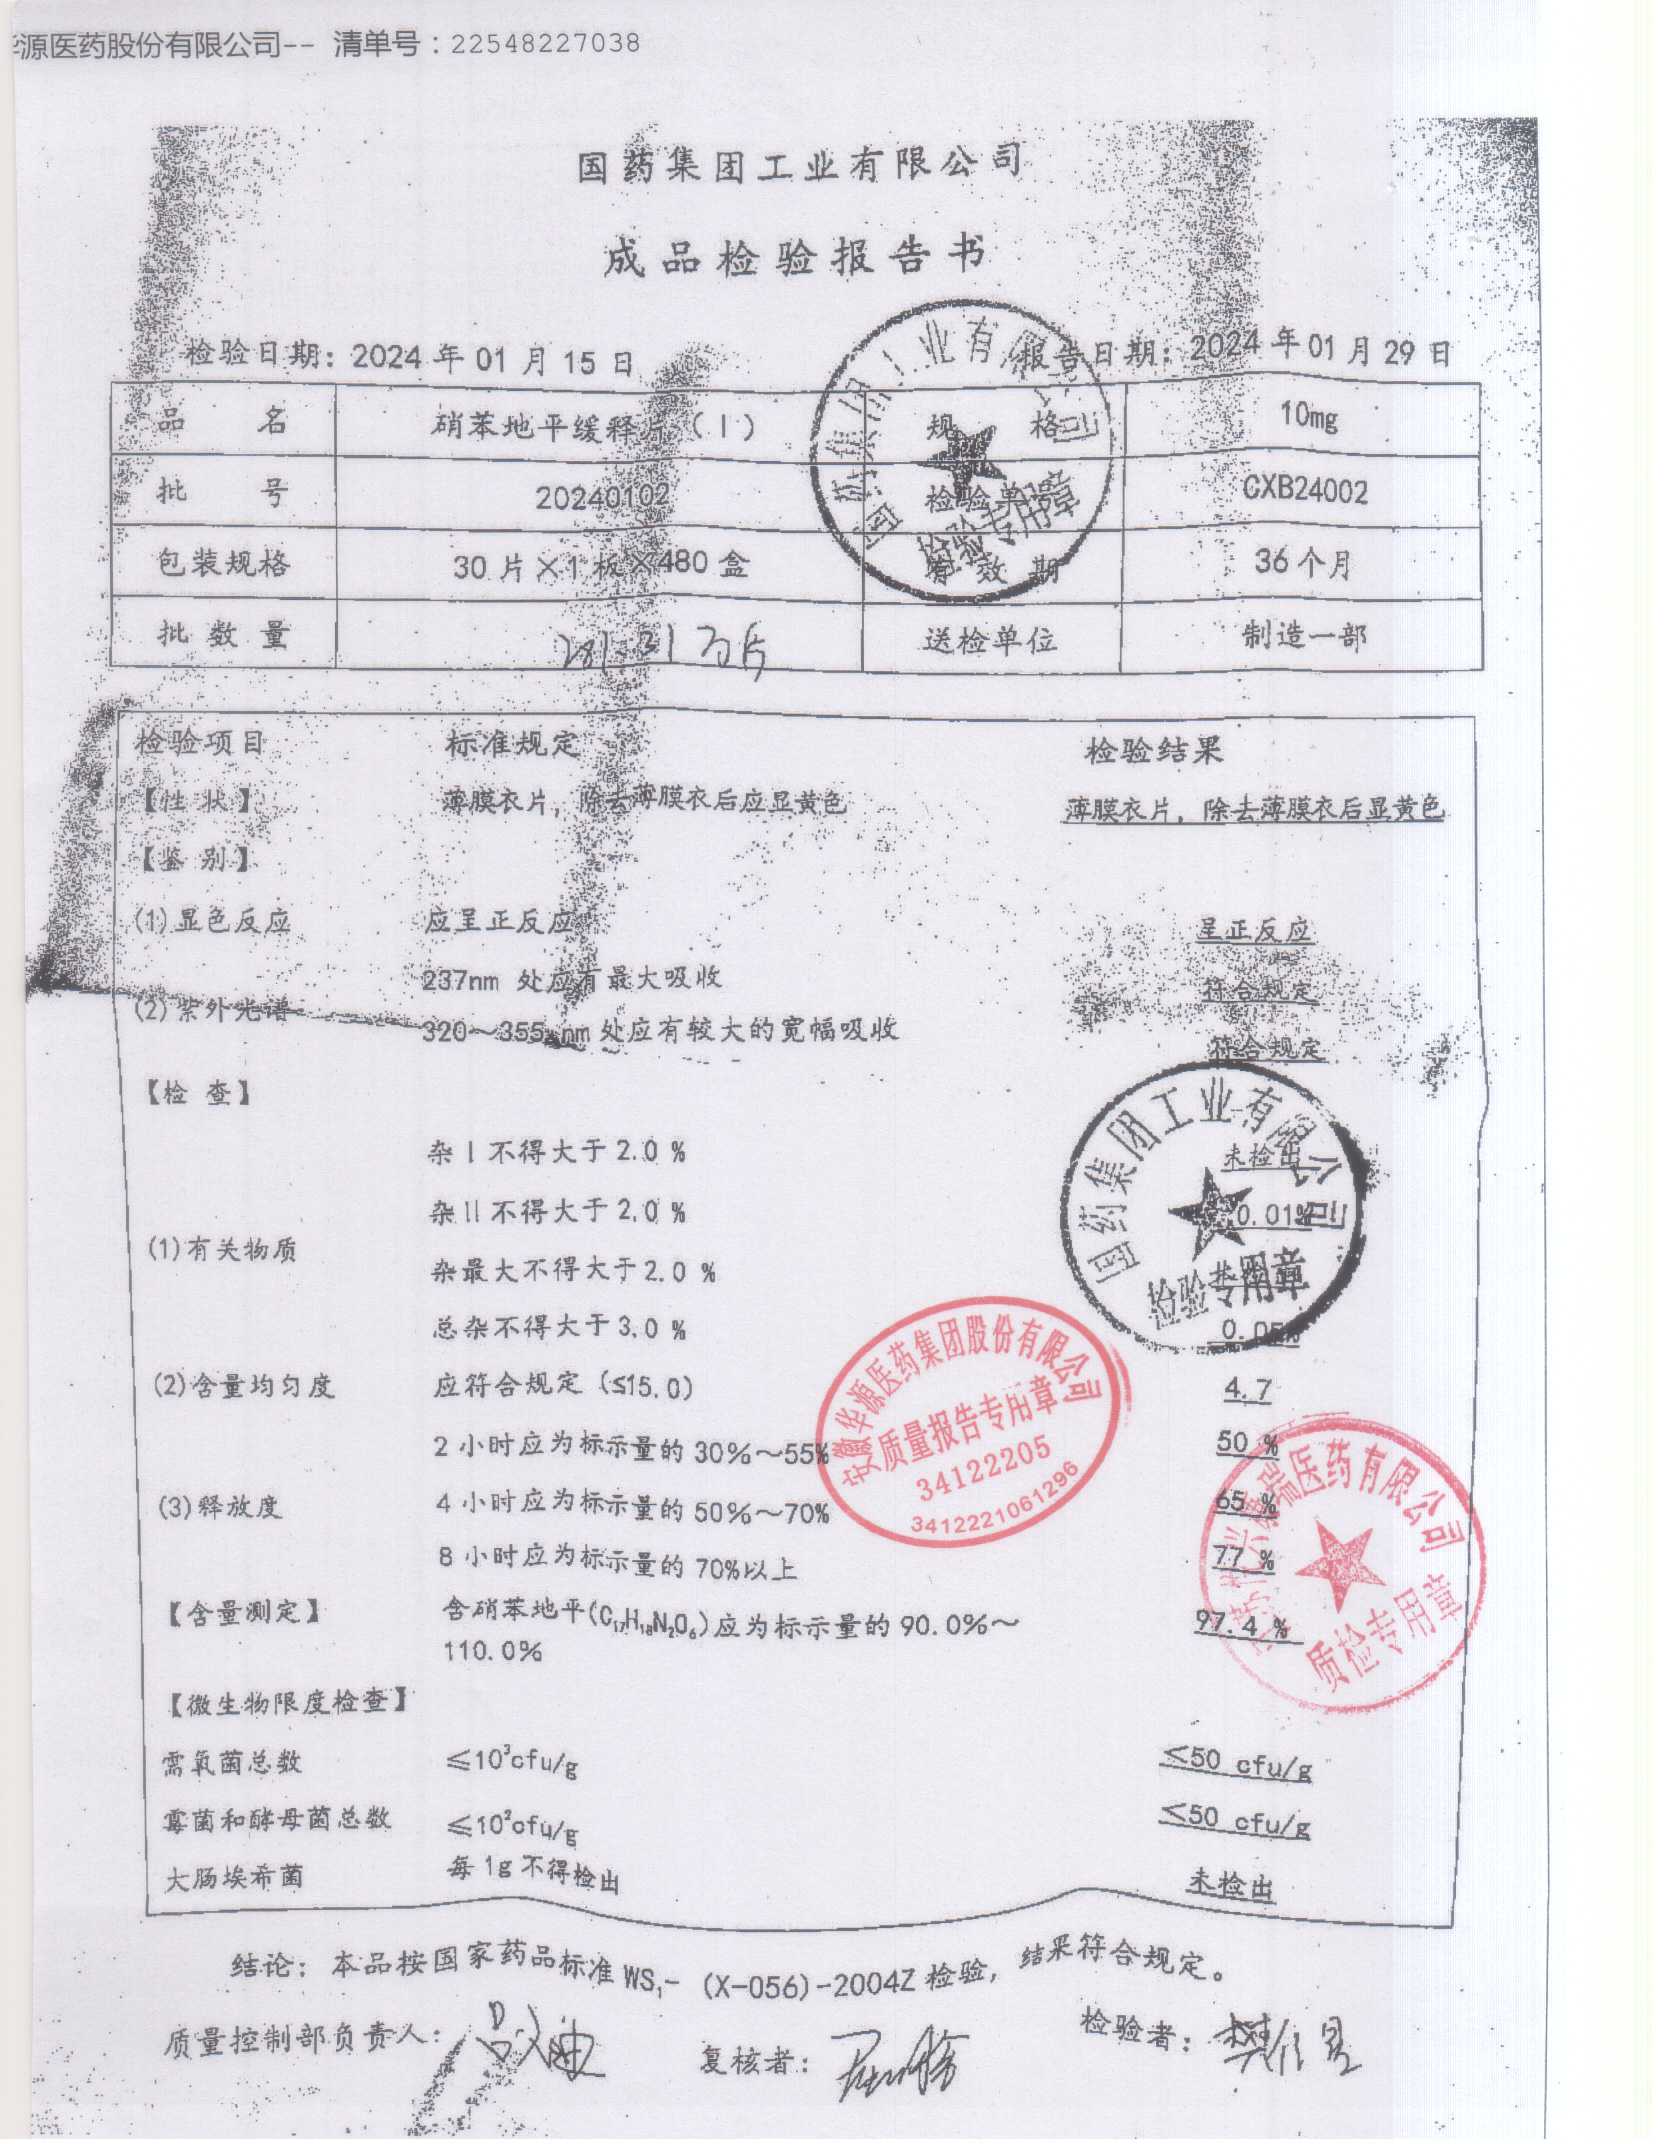 华源医药股份有限公司-- 清单号：22548227038
国药集团工业有限公司
成品检验报告书
检验日期：2024年01月15日 报告日期：2024年01月29日
品 名 硝苯地平缓释片（Ⅰ） 规 格 10mg
批 号 20240102 检验单号 CXB24002
包装规格 30片×1板×480盒 有 效 期 36个月
批 数 量 万片 送检单位 制造一部
检验项目 标准规定 检验结果
【性 状】 薄膜衣片，除去薄膜衣后应显黄色 薄膜衣片，除去薄膜衣后显黄色
【鉴 别】
(1)显色反应 应呈正反应 呈正反应
237nm 处应有最大吸收 符合规定
(2)紫外光谱
320～355 nm处应有较大的宽幅吸收 符合规定
【检 查】
杂Ⅰ不得大于2.0 % 未检出
杂Ⅱ不得大于2.0 % 0.01%
(1)有关物质
杂最大不得大于2.0 %
总杂不得大于3.0 % 0.05%
(2)含量均匀度 应符合规定（≤15.0） 4.7
2小时应为标示量的30%～55% 50 %
(3)释放度 4小时应为标示量的50%～70% 65 %
8小时应为标示量的70%以上 77 %
【含量测定】 含硝苯地平(C₁₇H₁₈N₂O₆)应为标示量的90.0%～ 97.4 %
110.0%
【微生物限度检查】
需氧菌总数 ≤10³cfu/g ≤50 cfu/g
霉菌和酵母菌总数 ≤10²cfu/g ≤50 cfu/g
大肠埃希菌 每1g不得检出 未检出
结论：本品按国家药品标准WS₁-（X-056)-2004Z检验，结果符合规定。
质量控制部负责人：
复核者：
检验者：
国药集团工业有限公司
检验专用章
国药集团工业有限公司
检验专用章
安徽华源医药集团股份有限公司
质量报告专用章
34122205
3412221061296
瑞医药有限公司
质检专用章